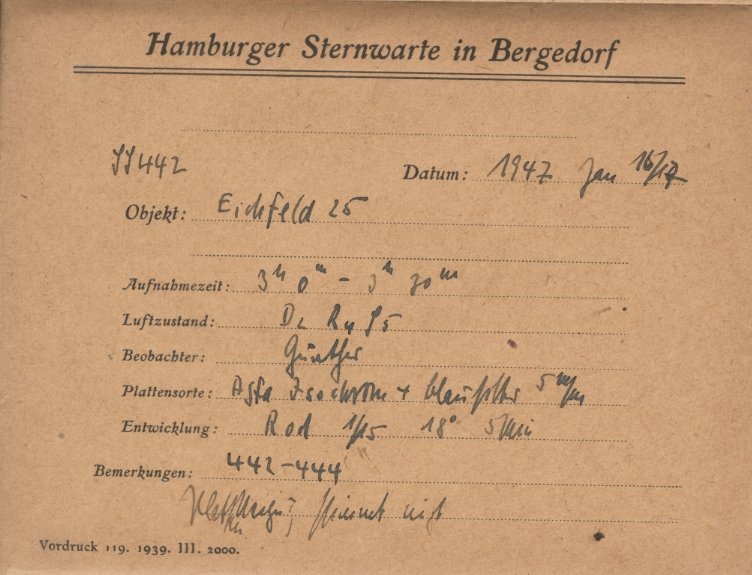 Hamburger Sternwarte in Bergedorf
442
Datum: 1947 Jan 16/17
Objekt: Eichfeld 25
Aufnahmezeit: 3h 0m – 3h 30m
Luftzustand:
Beobachter: Günther
Plattensorte: Agfa Isochrom + blaufilter 5 m/m
Entwicklung: Rod 1/15 18° 5 Min
Bemerkungen: 442–444
Vordruck 119. 1939. III. 2000.